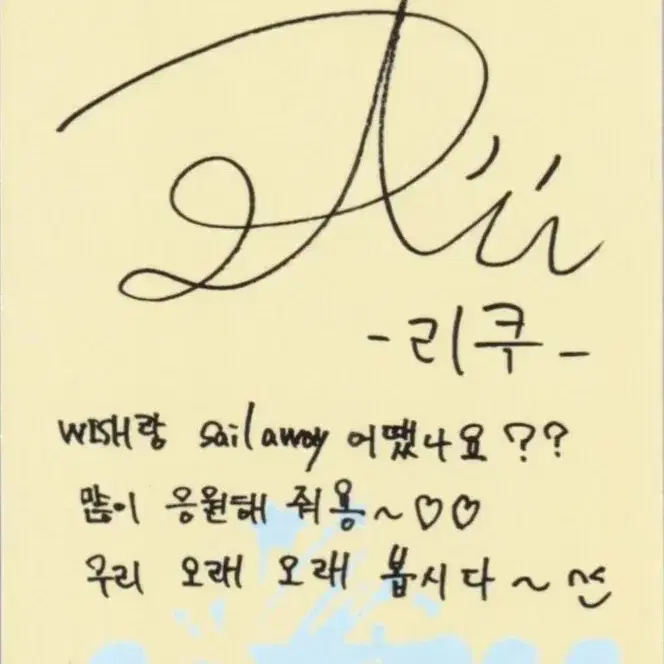 -리쿠-
WISH랑 sail away 어땠나요??
많이 응원해 줘용~♡♡
우리 오래 오래 봅시다~